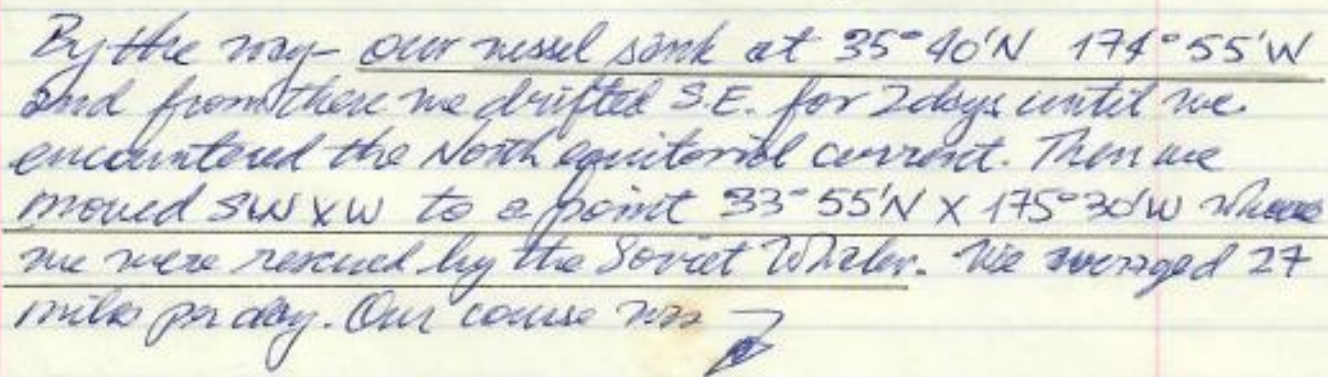 By the way our vessel sank at 35°40'N 174°55'W
and from there we drifted S.E. for 2 days until we
encountered the North equitorial current. Then we
moved SW X W to a point 33°55'N X 175°30'W where
we were rescued by the Soviet Whaler. We averaged 27
miles per day. Our course was